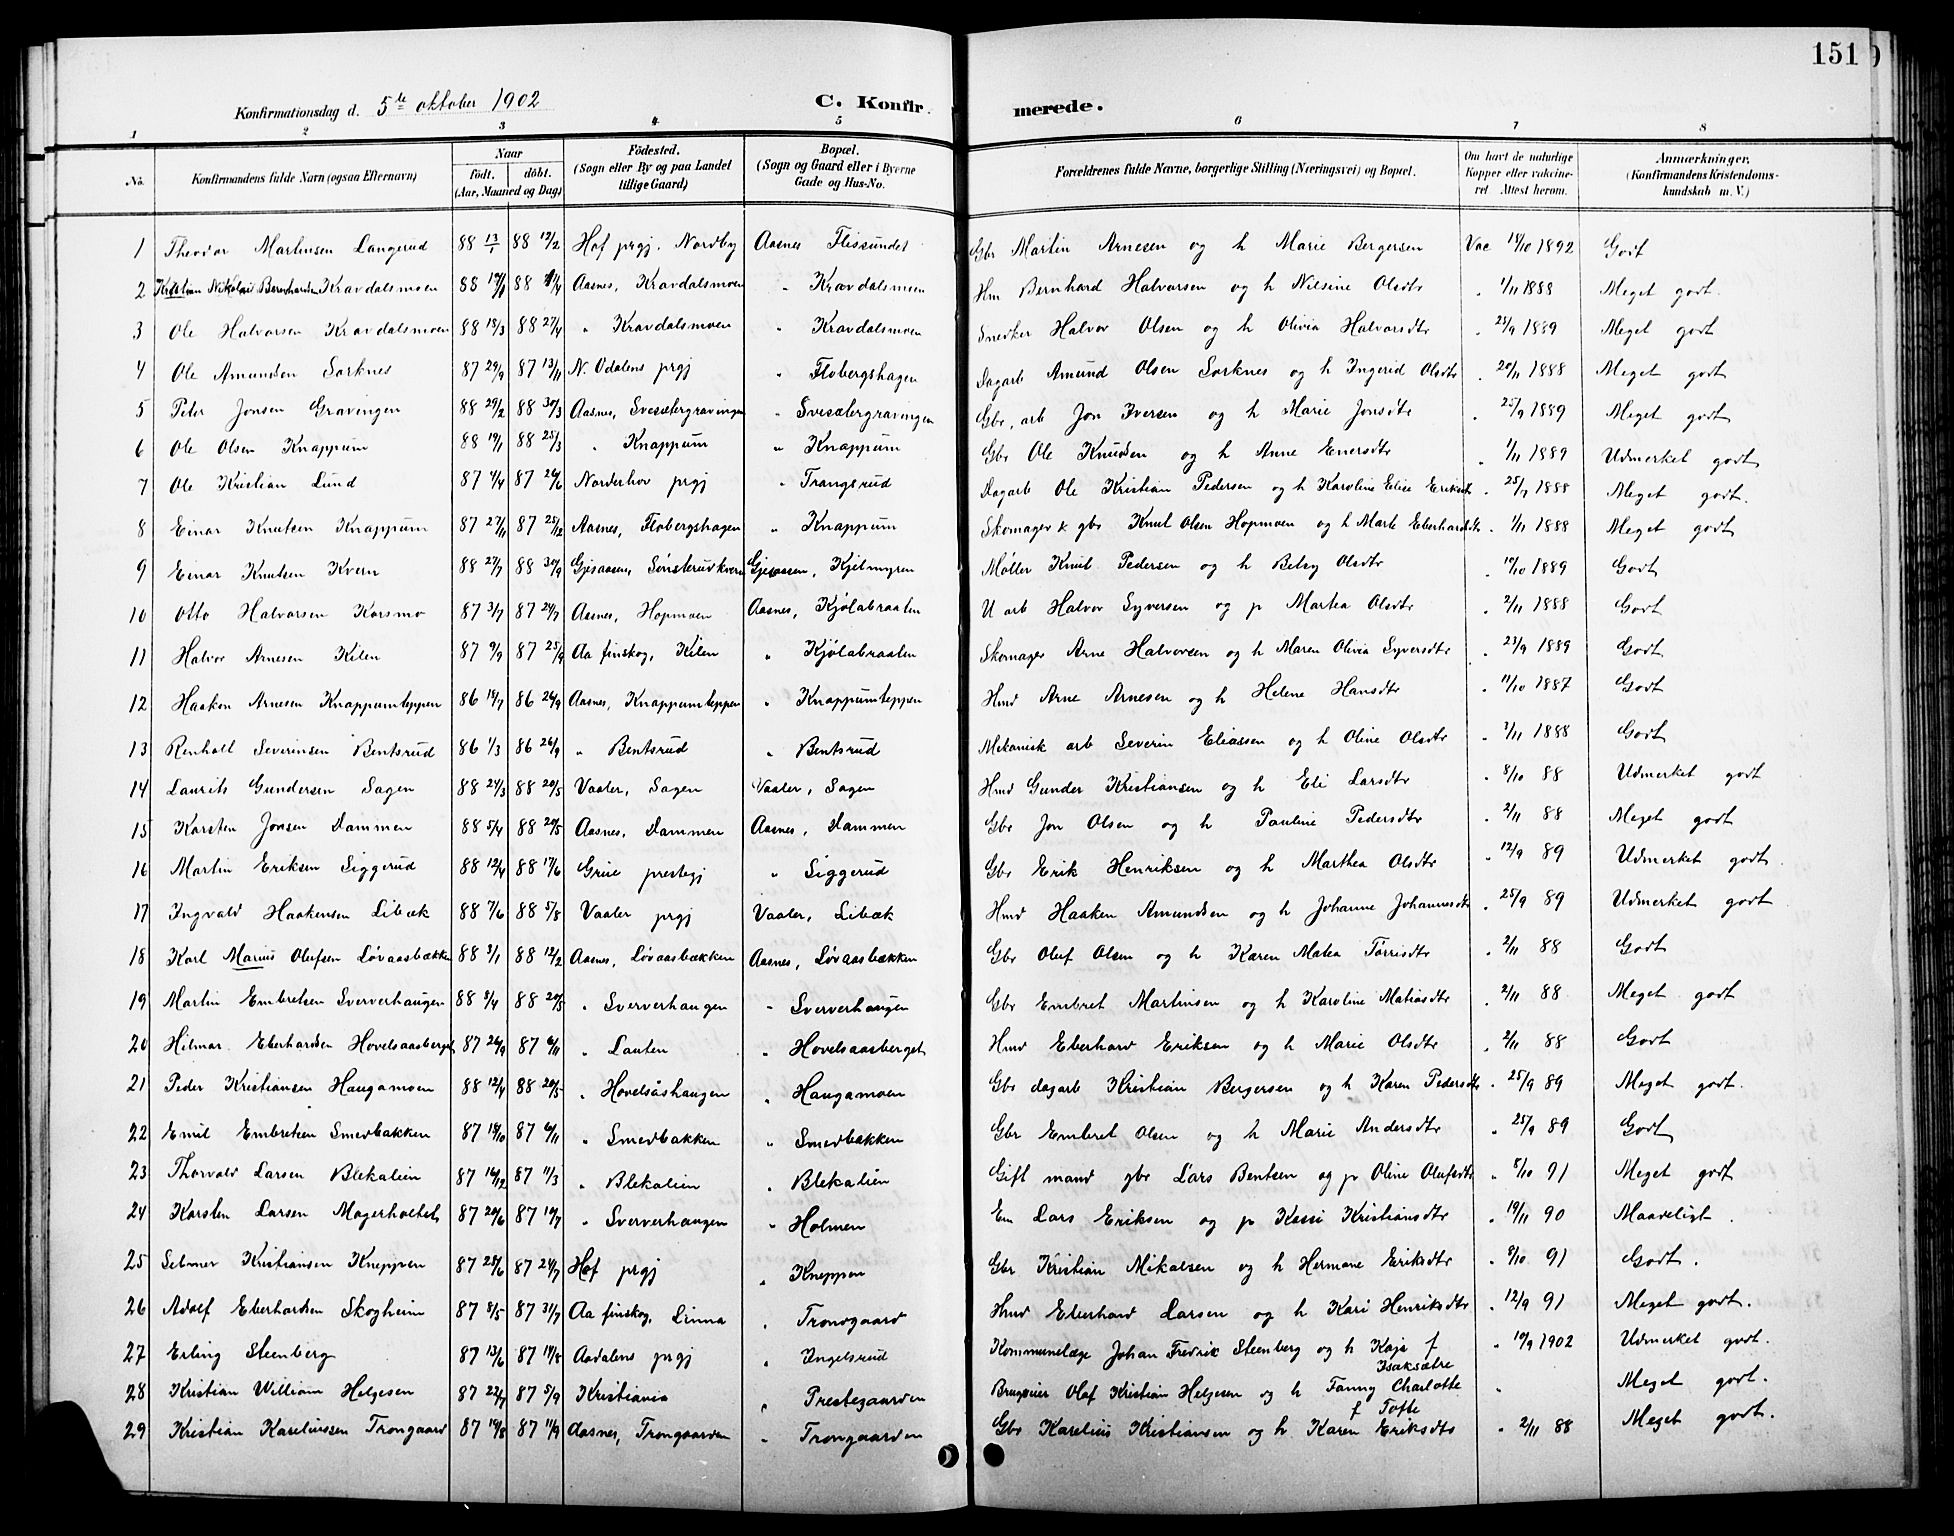 151
Konfirmationsdag d. 5te oktober 1902 C. Konfirmerede.
1 2 3 4 5 6 7 8
No. Konfirmandens fulde Navn (ogsaa Efternavn) Naar födt. döbt. (Aar, Maaned og Dag) Födested. (Sogn eller By og paa Landet tillige Gaard) Bopæl. (Sogn og Gaard eller i Byerne Gade og Hus-No. Forældrenes fulde Navne, borgerlige Stilling (Næringsvei) og Bopæl. Om havt de naturlige Kopper eller vakcineret. Attest herom. Anmærkninger, (Konfirmandens Kristendomskundskab m. V.)
1 Theodor Martinsen Langerud 88 13/1 88 12/2 Hof prgj. Nordby Aasnes Flissundet Gbr Martin Arnesen og h Marie Bergersen Vac 18/10 1892 Godt
2 Kristian Nikolai Bernhardsen Kravdalsmoen 88 88 Aasnes, Kravdalsmoen " Kravdalsmoen Hm Bernhard Halvorsen og h Nilsine Olsdtr " 1/11 1888 Meget godt.
3 Ole Halvorsen Kravdalsmoen 88 18/3 88 27/4 " Kravdalsmoen " Kravdalsmoen Snedker Halvor Olsen og h Olivia Halvorsdtr " 25/9 1889 Meget godt
4 Ole Amundsen Sorknes 87 29/9 87 13/11 N. Odalens prgj " Flobergshagen Dagarb Amund Olsen Sorknes og h Ingerid Olsdtr " 20/11 1888 Meget godt
5 Peter Jonsen Gravingen 88 29/2 88 30/3 Aasnes, Svesætergravingen " Svesætergravingen Gbr, arb Jon Iversen og h Marie Jonsdtr " 25/9 1889 Meget godt
6 Ole Olsen Knappum 88 19/1 88 25/3 " Knappum " Knappum Gbr Ole Knudsen og h Anne Enersdtr " 1/11 1889 Udmerket godt
7 Ole Kristian Lund 87 4/4 87 26/6 Norderhov prgj " Trangsrud Dagarb Ole Kristian Pedersen og h Karoline Elise Eriksdtr " 25/9 1888 Meget godt.
8 Einar Knutsen Knappum 87 27/11 87 25/12 Aasnes, Flobergshagen " Knappum Skomager & gbr Knut Olsen Hopmoen og h Marte Eberhardsdtr " 1/11 1888 Meget godt
9 Einar Knutsen Kvern 88 27/7 88 30/9 Gjesaasen, Sønsterudkvern Gjesaasen, Kjelmyren Møller Knut Pedersen og h Betsy Olsdtr " 10/10 1889 Godt
10 Otto Halvorsen Korsmo 87 3/7 87 24/7 Aasnes, Hopmoen Aasnes, Kjølabraaten U arb Halvor Syversen og p Martea Olsdtr " 2/11 1888 Godt
11 Halvor Arnesen Kilen 87 9/9 87 25/9 Aa finskog, Kilen " Kjølabraaten Skomager Arne Halvorsen og h Maren Olivia Syversdtr " 23/9 1889 Godt
12 Haaken Arnesen Knappumteppen 86 18/7 86 26/9 Aasnes, Knappumteppen " Knappumteppen Hmd Arne Arnesen og h Helene Hansdtr " 11/10 1887 Godt
13 Renholt Severinsen Bentsrud 86 1/3 86 26/9 " Bentsrud " Bentsrud Mekanisk arb Severin Eliassen og h Oline Olsdtr " 1/11 1888 Godt
14 Laurits Gundersen Sagen 88 24/3 88 20/5 Vaaler, Sagen Vaaler, Sagen Hmd Gunder Kristiansen og h Eli Larsdtr " 8/10 88 Udmerket godt
15 Karsten Jonsen Dammen 88 5/4 88 20/5 Aasnes, Dammen Aasnes, Dammen Gbr Jon Olsen og h Pauline Pedersdtr " 2/11 88 Meget godt
16 Martin Eriksen Siggerud 88 12/4 88 17/6 Grue prestegj " Siggerud Gbr Erik Henriksen og h Marthea Olsdtr " 12/9 89 Udmerket godt.
17 Ingvald Haakensen Libæk 88 7/6 88 5/8 Vaaler prgj Vaaler, Libæk Hmd Haaken Amundsen og h Johanne Johannesdtr " 25/9 89 Udmerket godt
18 Karl Marius Olufsen Løvaasbækken 88 3/1 88 12/2 Aasnes, Løvaasbækken Aasnes, Løvaasbækken Gbr Oluf Olsen og h Karen Matea Tørrisdtr " 2/11 88 Godt
19 Martin Embretsen Sververhaugen 88 8/4 88 20/5 " Sververhaugen " Sververhaugen Gbr Embret Martinsen og h Karoline Matiasdtr " 2/11 88 Meget godt
20 Hilmar Eberhardsen Hovelsaasberget 87 26/9 87 6/11 " Lauten " Hovelsaasberget Hmd Eberhard Eriksen og h Marie Olsdtr " 2/11 88 Godt
21 Peder Kristiansen Haugamoen 88 12/4 88 20/5 " Hovelsåshaugen " Haugamoen Gbr dagarb Kristian Bergersen og h Karen Pedersdtr " 25/9 89 Meget godt.
22 Emil Embretsen Smedbakken 87 18/10 87 6/11 " Smedbakken " Smedbakken Gbr Embret Olsen og h Marie Andersdtr " 25/9 89 Godt
23 Thorvald Larsen Blekalien 87 87 11/3 " Blekalien " Blekalien Gift mand gbr Lars Bentsen og p Oline Olufsdtr " 8/10 91 Meget godt
24 Karsten Larsen Magerholtet 87 20/6 87 10/7 " Sververhaugen " Holmen Em Lars Eriksen og p Kassi Kristiansdtr " 19/11 90 Maadeligt.
25 Selmer Kristiansen Kneppen 87 25/6 87 24/7 Hof prgj " Kneppen Gbr Kristian Mikalsen og h Hermane Eriksdtr " 8/10 91 Godt.
26 Adolf Eberhardsen Skogheim 87 8/5 87 31/7 Aa finskog, Linna " Trondgaard Hmd Eberhard Larsen og h Kari Henriksdtr " 12/9 91 Meget godt.
27 Erling Steenberg 87 13/6 87 Aadalens prgj " Ingelsrud Kommunelæge Johan Fredrik Steenberg og h Kaja f Isaksætre " 10/9 1902 Udmerket godt.
28 Kristian William Helgesen 87 22/7 87 5/9 Kristiania " Prestegaarden Brugseier Olaf Kristian Helgesen og h Fanny Charlotte f Tofte " Meget godt.
29 Kristian Kareliussen Trongaard 87 87 11/9 Aasnes, Trongaarden " Trongaarden Gbr Karelius Kristiansen og h Karen Eriksdtr " 2/11 88 Meget godt.